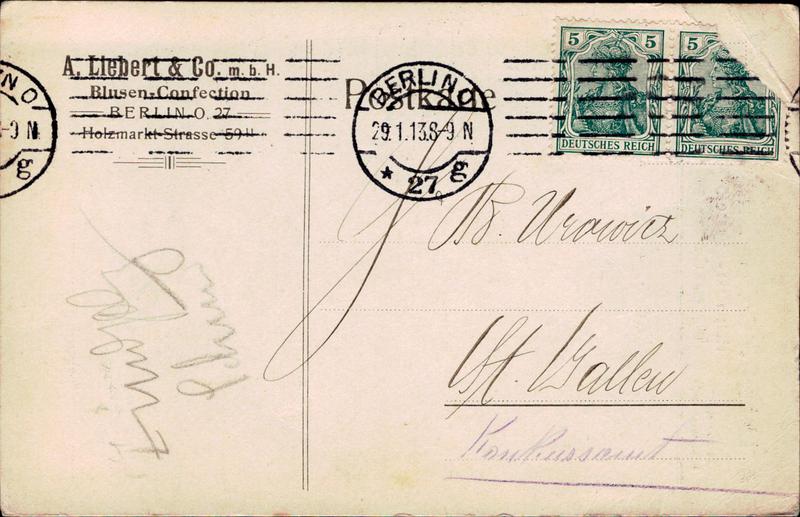 A. Liebert & Co. m. b. H.
Blusen-Confection
BERLIN O. 27
Holzmarkt-Strasse 59 II
Postkarte
BERLIN O
29.1.13.8-9 N
* 27 g
5 5
DEUTSCHES REICH
5
DEUTSCHES REICH
N O
-9 N
g
B. Urowicz
St. Gallen
Konkursamt